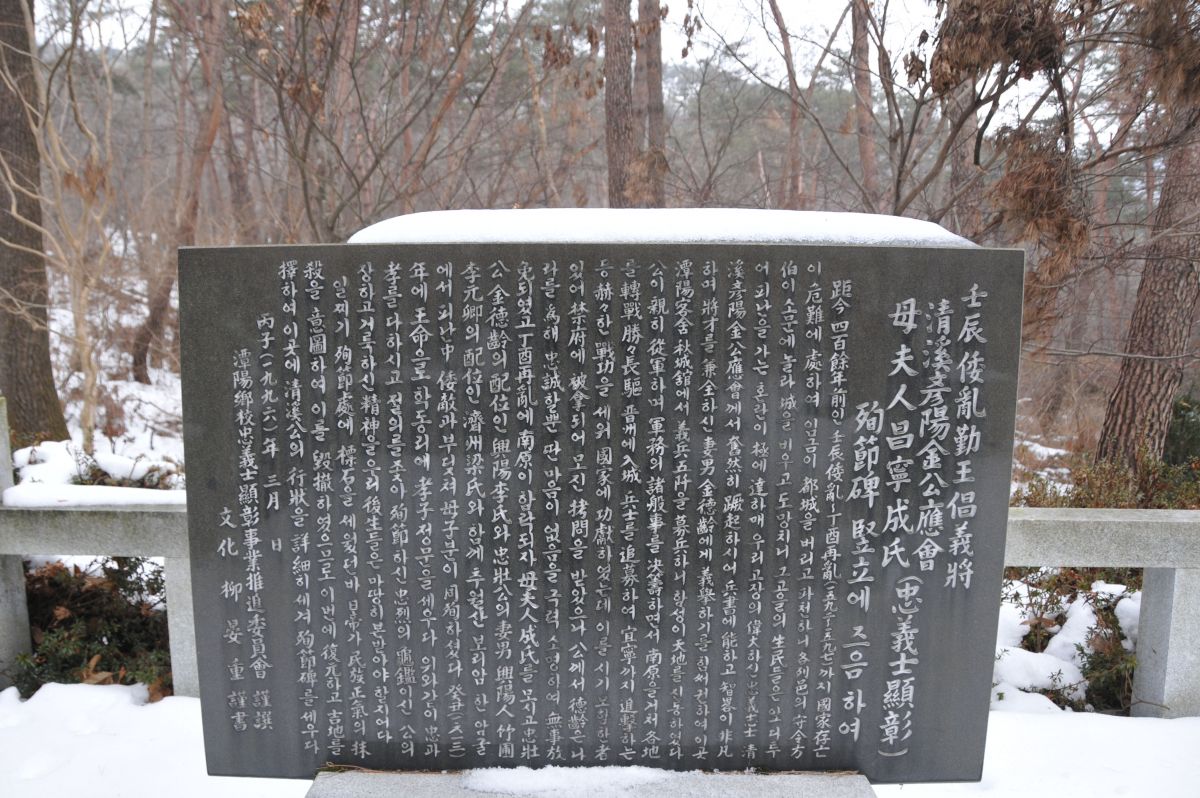 壬辰倭亂勤王倡義將
清溪彦陽金公應會
母夫人昌寧成氏(忠義士顯彰)
殉節碑 竪立에 즈음하여
距今 四百餘年前인 壬辰倭亂~丁酉再亂(一五九二~一五九七)까지 國家存亡
이 危難에 處하여 임금이 都城을 버리고 파천하니 各列邑의 守令方
伯이 소문에 놀라 城을 비우고 도망치니 그 고을의 生民들은 앞다투
어 피난을 가는 혼란이 極에 達하매 우리 고장의 偉大하신 忠義士 清
溪彦陽金公應會께서 奮然히 蹶起하시어 兵書에 能하고 智畧이 非凡
하며 將才를 兼全하신 妻男金德齡에게 義擧하기를 힘써 권하여 이곳
潭陽客舍 秋城舘에서 義兵五阡을 募兵하니 함성이 大地를 진동하였다
公이 親히 從軍하며 軍務의 諸般事를 决籌하면서 南原을 거쳐 各地
를 轉戰勝々長驅 晋州에 入城 兵士를 追募하여 宜寧까지 追擊하는
등 赫々한 戰功을 세워 國家에 功獻하였는데 이를 시기 모함한 者
있어 禁府에 被拿되어 모진 拷問을 받았으나 公께서 德齡은 나
라를 爲해 忠誠할뿐 딴 마음이 없음을 극력 소명하여 無事放
免되였고 丁酉再亂에 南原이 함락되자 母夫人成氏를 모시고 忠壯
公金德齡의 配位인 興陽李氏와 忠壯公의 妻男 興陽人 竹圃
李元卿의 配位인 濟州梁氏와 함께 추월산 보리암 한 암굴
에서 피난中 倭敵과 부딪쳐 母子분이 同殉하셨다 癸丑(一六一三)
年에 王命으로 향동리에 孝子정문을 세우다 의와 같이 忠과
孝를 다하시고 절의를 좇아 殉節하신 忠烈의 龜鑑이신 公의
장하고 거룩하신 精神을 우리 後生들은 마땅히 본받아야 할것이다
일찌기 殉節處에 標石을 세웠던바 日帝가 民族正氣의 抹
殺을 意圖하여 이를 毁撤하였으므로 이번에 復元하고 吉地를
擇하여 이곳에 清溪公의 行狀을 詳細히 세겨 殉節碑를 세우다
丙子(一九九六)年 三月 日
潭陽鄕校忠義士顯彰事業推進委員會 謹撰
文化 柳晏重 謹書